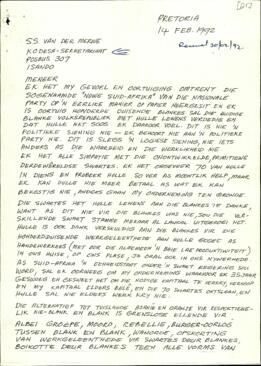 PRETORIA
14 FEB. 1992
S.S. VAN DER MERWE
KODESA-SEKRETARIAAT
POSBUS 307
ISANDO
MENEER
EK HET MY GEVOEL EN OORTUIGING OMTRENT DIE
SOGENAAMDE "NUWE SUID-AFRIKA" VAN DIE NASIONALE
PARTY OP 'N EERLIKE MANIER OP PAPIER NEERGESIT EN EK
IS OORTUIG HONDERDE DUISENDE BLANKES SAL DIE HUIDIGE
BLANKE VOLKSREPUBLIEK MET HULLE LEWENS VERDEDIG EN
DAT HULLE NET SOOS EK DAAROOR VOEL. DIT IS NIE 'N
POLITIEKE SIENING NIE — EK BEHOORT NIE AAN 'N POLITIEKE
PARTY NIE. DIT IS SLEGS 'N LOGIESE SIENING, NIE IETS
ANDERS AS DIE WAARHEID EN DIE WERKLIKHEID NIE
EK HET ALLE SIMPATIE MET DIE ONONTWIKKELDE, PRIMITIEWE
DERDEWÊRELDSE SWARTES. EK HET ONGEVEER 70 VAN HULLE
IN DIENS EN PROBEER HULLE SO VER AS MOONTLIK HELP, MAAR
EK KAN HULLE NIE MEER BETAAL AS WAT EK KAN
BEKOSTIG NIE, ANDERS GAAN MY ONDERNEMING TEN GRONDE.
DIE SWARTES HET HULLE LEWENS AAN DIE BLANKES TE DANKE,
WANT AS DIT NIE VIR DIE BLANKES WAS NIE, SOU DIE VER-
SKILLENDE SWART STAMME MEKAAR AL LANKAL UITGEROEI HET.
HULLE IS OOK DANK VERSKULDIG AAN DIE BLANKES VIR DIE
HONDERDDUISENDE WERKGELEENTHEDE AAN HULLE GEBIED AS
HANDEWERKERS (MET OOR DIE ALGEMEEN 'N BAIE LAE PRODUKTIWITEIT)
IN ONS HUISE, OP ONS PLASE, JA ORAL OOK IN ONS NYWERHEDE.
AS SUID-AFRIKA ONDER SWART REGERING SOU
WORD, SAL EK MY ONDERNEMING WAARVOOR EK 35 JAAR
GESWOEG EN GESWEET HET OM DIE NODIGE KAPITAAL TE VERKRY, VERKOOP
EN MY KAPITAAL ELDERS BELÊ, EN DIE 70 SWARTES ONTSLAAN, EN
HULLE SAL NIE ELDERS WERK KRY NIE.
DIE ALTERNATIEF TOT TUISLANDE, BLANK EN GROEPE VIR RESPEKTIEWE-
LIK NIE-BLANK EN BLANK IS GRENSLOSE ELLENDE VIR
ALBEI GROEPE, MOORD, REBELLIE, BURGER-OORLOG
TUSSEN BLANK EN BLANK, WANORDE, OPSKORTING
VAN WERKGELEENTHEDE VIR SWARTES DEUR BLANKES,
BOIKOTTE DEUR BLANKES TEEN ALLE VORMS VAN